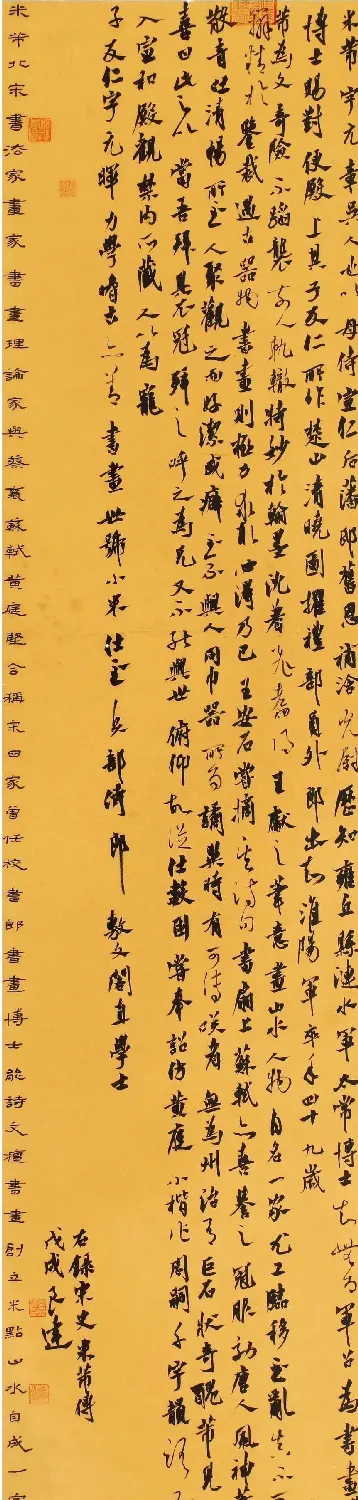 米芾字元章吳人也以母侍宣仁后藩邸舊恩補浛光尉歷知雍丘縣漣水軍太常博士知無為軍召為書畫
博士賜對便殿上其子友仁所作楚山清曉圖擢禮部員外郎出知淮陽軍卒年四十九歲
芾為文奇險不蹈襲前人軌轍特妙於翰墨沈著飛翥得王獻之筆意畫山水人物自名一家尤工臨移至亂真不可
辨精於鑒裁遇古器物書畫則極力求取必得乃已王安石嘗摘其詩句書扇上蘇軾亦喜譽之冠服效唐人風神蕭
散音吐清暢所至人聚觀之而好潔成癖至不與人同巾器所為譎異時有可傳笑者無為州治有巨石狀奇醜芾見
喜曰此足以當吾拜具衣冠拜之呼之為兄又不能與世俯仰故從仕數困嘗奉詔仿黃庭小楷作周嗣千字韻語
入宣和殿觀禁內所藏人以為寵
子友仁字元暉力學嗜古亦善書畫世號小米仕至兵部侍郎敷文閣直學士
右錄宋史米芾傳
戊戌良達
米芾北宋書法家畫家書畫理論家與蔡襄蘇軾黃庭堅合稱宋四家曾任校書郎書畫博士能詩文擅書畫創立米點山水自成一家